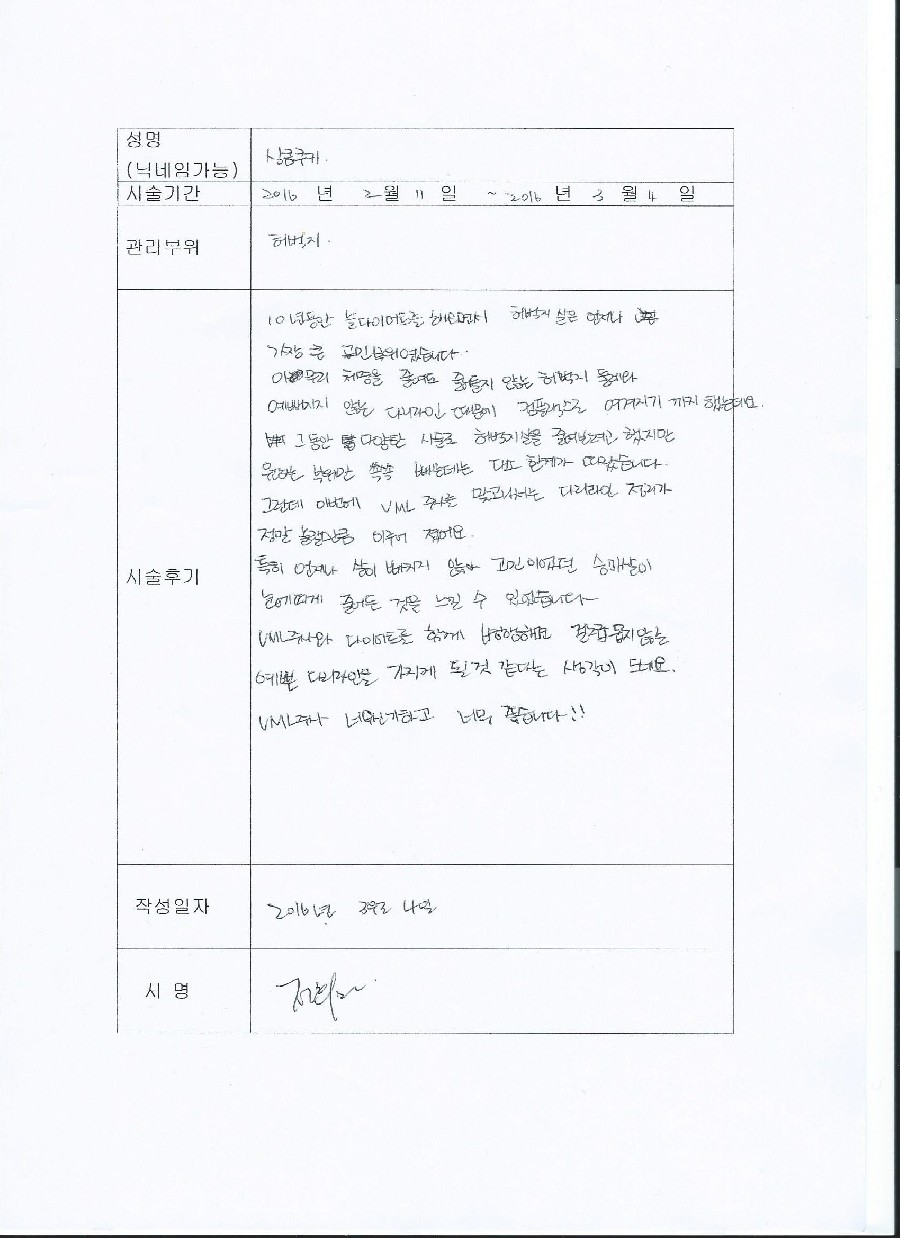 성명
(닉네임가능)
상콤쿠키.
시술기간
2016 년 2월 11 일 ~ 2016 년 3 월 4 일
관리부위
허벅지.
시술후기
10년동안 늘 다이어트를 해오면서 허벅지 살은 언제나
가장 큰 고민부위였습니다.
아무리 체중을 줄여도 줄지 않는 허벅지 둘레와
예뻐지지 않는 다리라인 때문에 컴플렉스로 여겨지기 까지 했는데요.
그동안 다양한 시술로 허벅지살을 줄여보려고 했지만
원하는 부위만 쏙쏙 빼는데는 다소 한계가 따랐습니다.
그런데 이번에 VML 주사를 맞고나서는 다리라인 정리가
정말 놀랄만큼 이루어 졌어요.
특히 언제나 살이 빠지지 않아 고민이었던 승마살이
눈에띄게 줄어든 것을 느낄 수 있었습니다~
VML주사와 다이어트를 함께 병행하면 꿀리지않는
예쁜 다리라인을 가지게 될것 같다는 생각이 드네요.
VML주사 너무신기하고 너무 좋습니다!!
작성일자
2016년 3월 4일
시 명